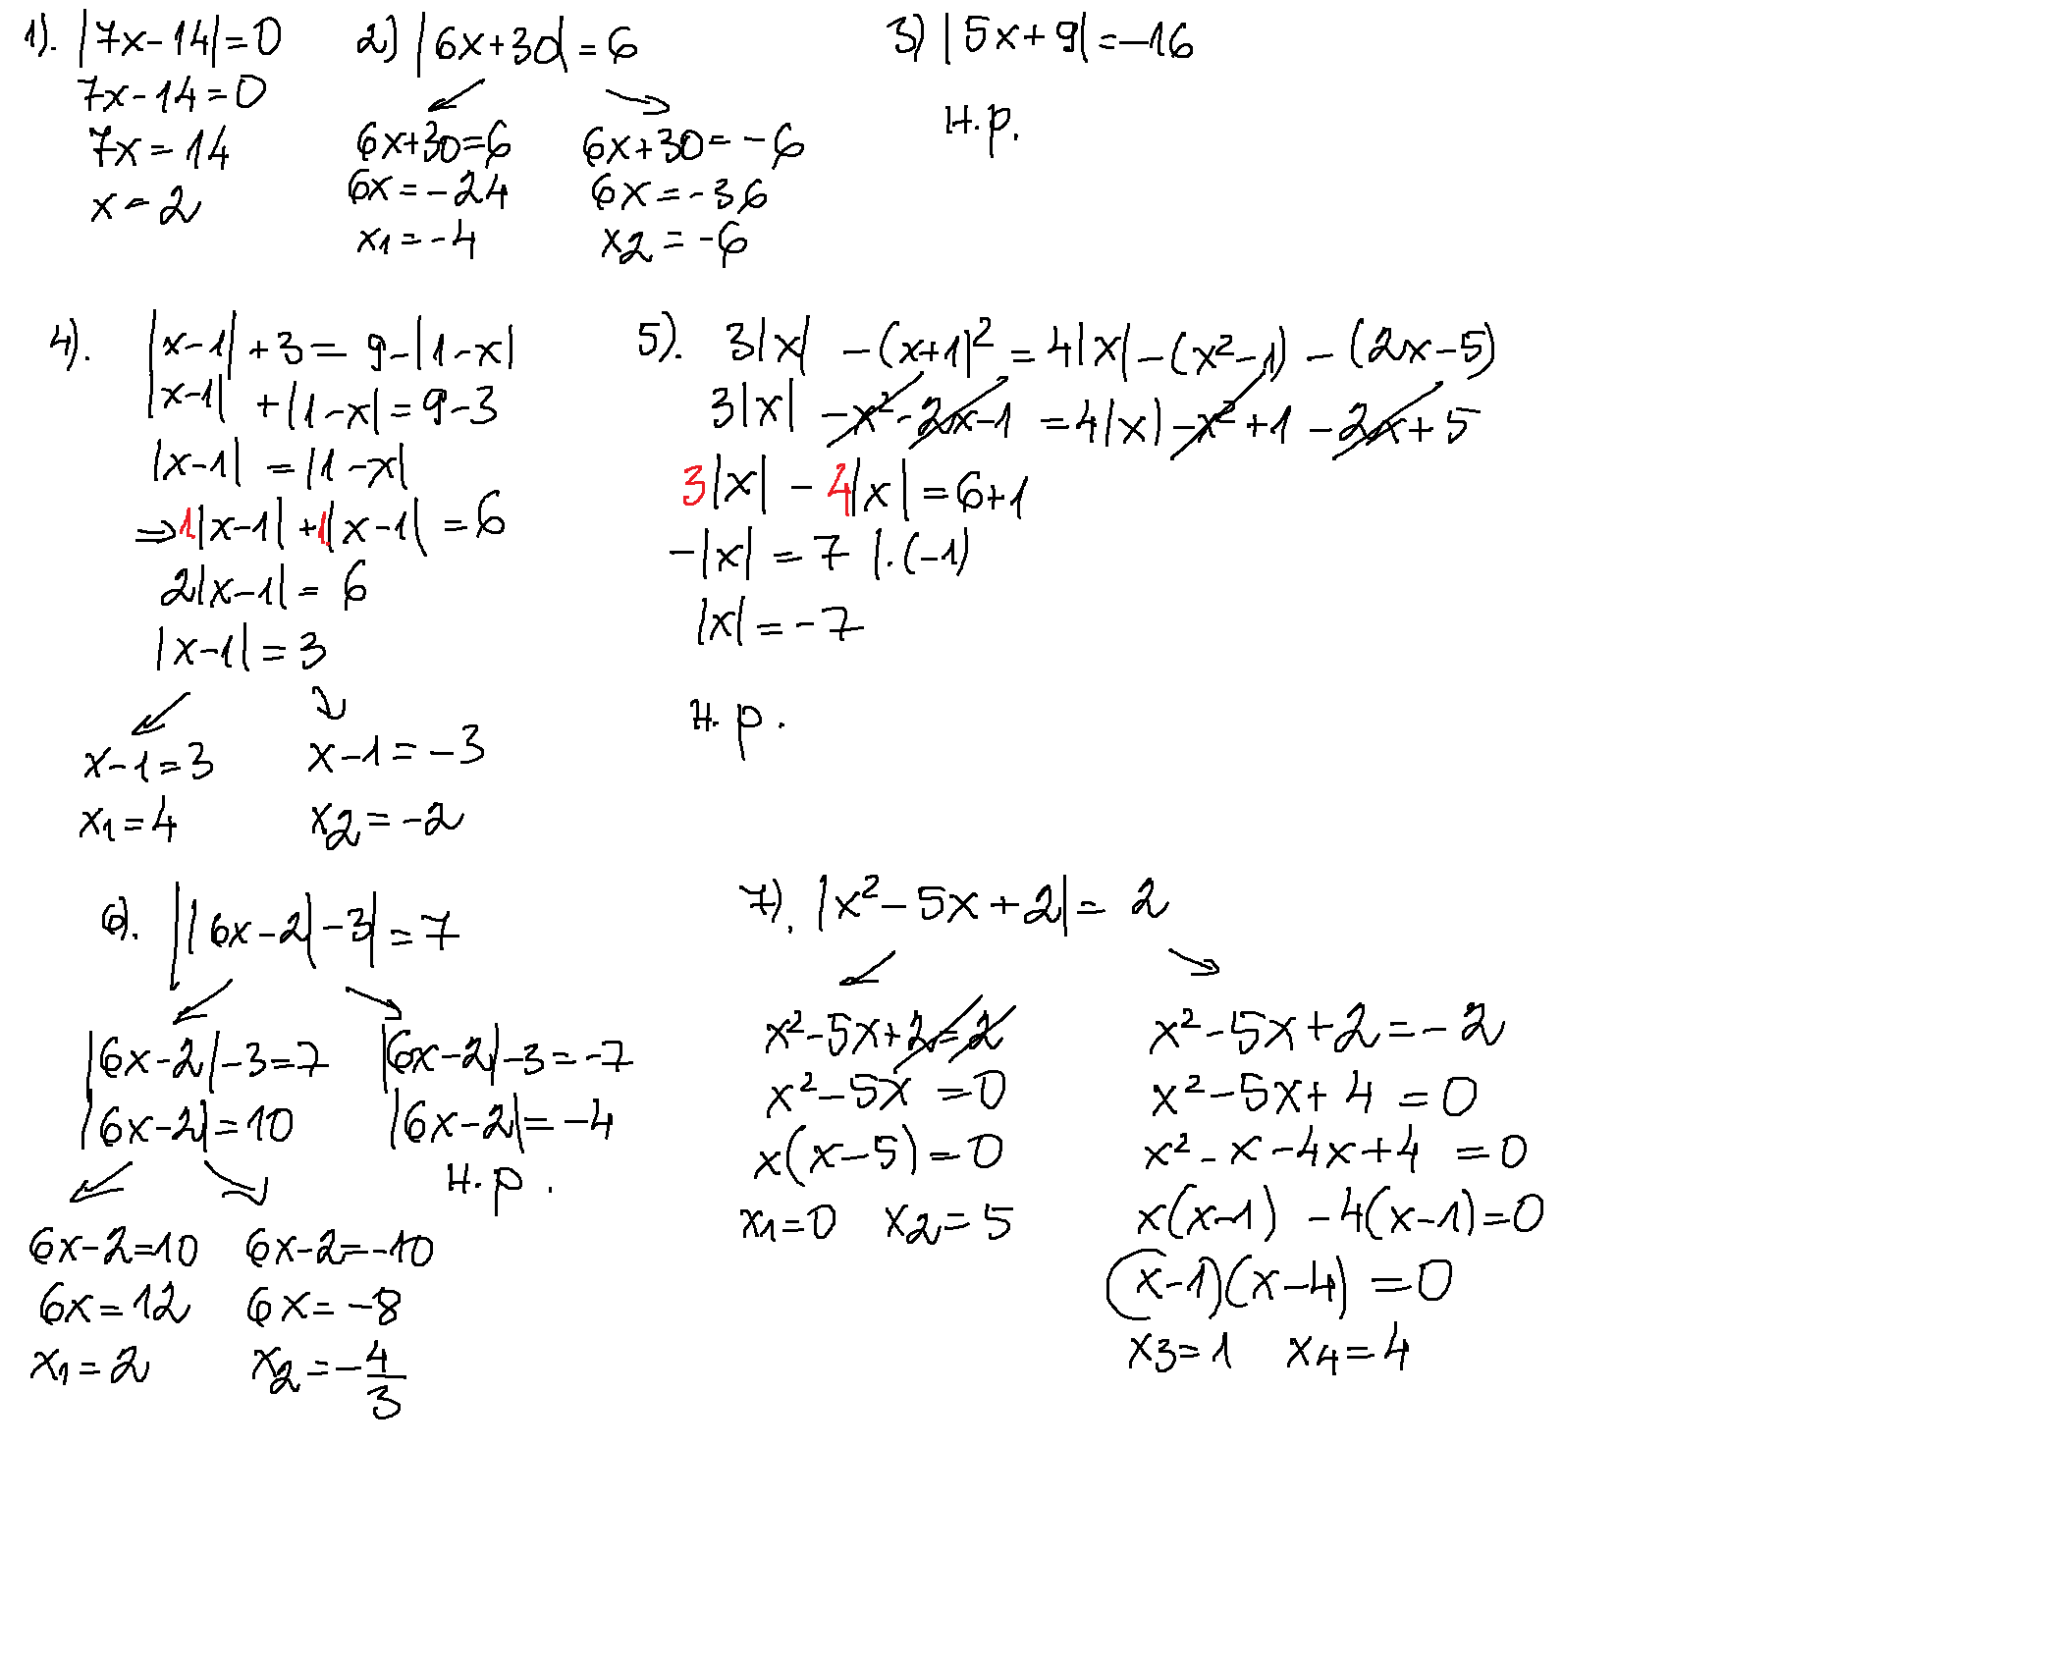 1). |7x-14|=0
7x-14=0
7x=14
x=2
2) |6x+30|=6
6x+30=6
6x=-24
x1=-4
6x+30=-6
6x=-36
x2=-6
3) |5x+9|=-16
Н.р.
4). |x-1|+3=9-|1-x|
|x-1|+|1-x|=9-3
|x-1|=|1-x|
⇒1|x-1|+1|x-1|=6
2|x-1|=6
|x-1|=3
x-1=3
x1=4
x-1=-3
x2=-2
5). 3|x|-(x+1)²=4|x|-(x²-1)-(2x-5)
3|x|-x²-2x-1=4|x|-x²+1-2x+5
3|x|-4|x|=6+1
-|x|=7 |.(-1)
|x|=-7
Н.р.
6). ||6x-2|-3|=7
|6x-2|-3=7
|6x-2|=10
6x-2=10
6x=12
x1=2
6x-2=-10
6x=-8
x2=-4/3
|6x-2|-3=-7
|6x-2|=-4
Н.р.
7). |x²-5x+2|=2
x²-5x+2=2
x²-5x=0
x(x-5)=0
x1=0 x2=5
x²-5x+2=-2
x²-5x+4=0
x²-x-4x+4=0
x(x-1)-4(x-1)=0
(x-1)(x-4)=0
x3=1 x4=4